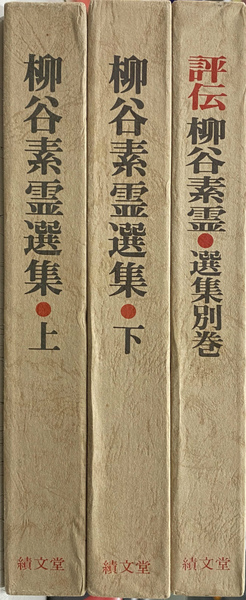 柳谷素霊選集●上
績文堂
柳谷素霊選集●下
績文堂
評伝柳谷素霊●選集別巻
績文堂